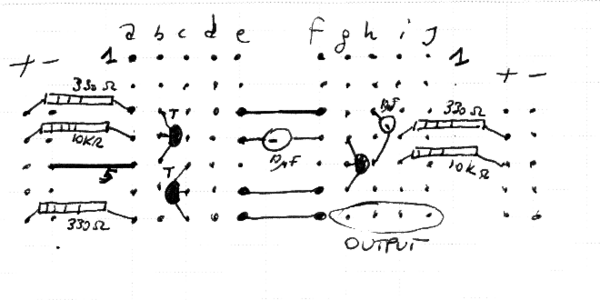 a b c d e f g h i j
+ - 1 1 + -
330Ω
T 10μF 330Ω
10KΩ
10KΩ
T 10μF
5
330Ω
OUTPUT